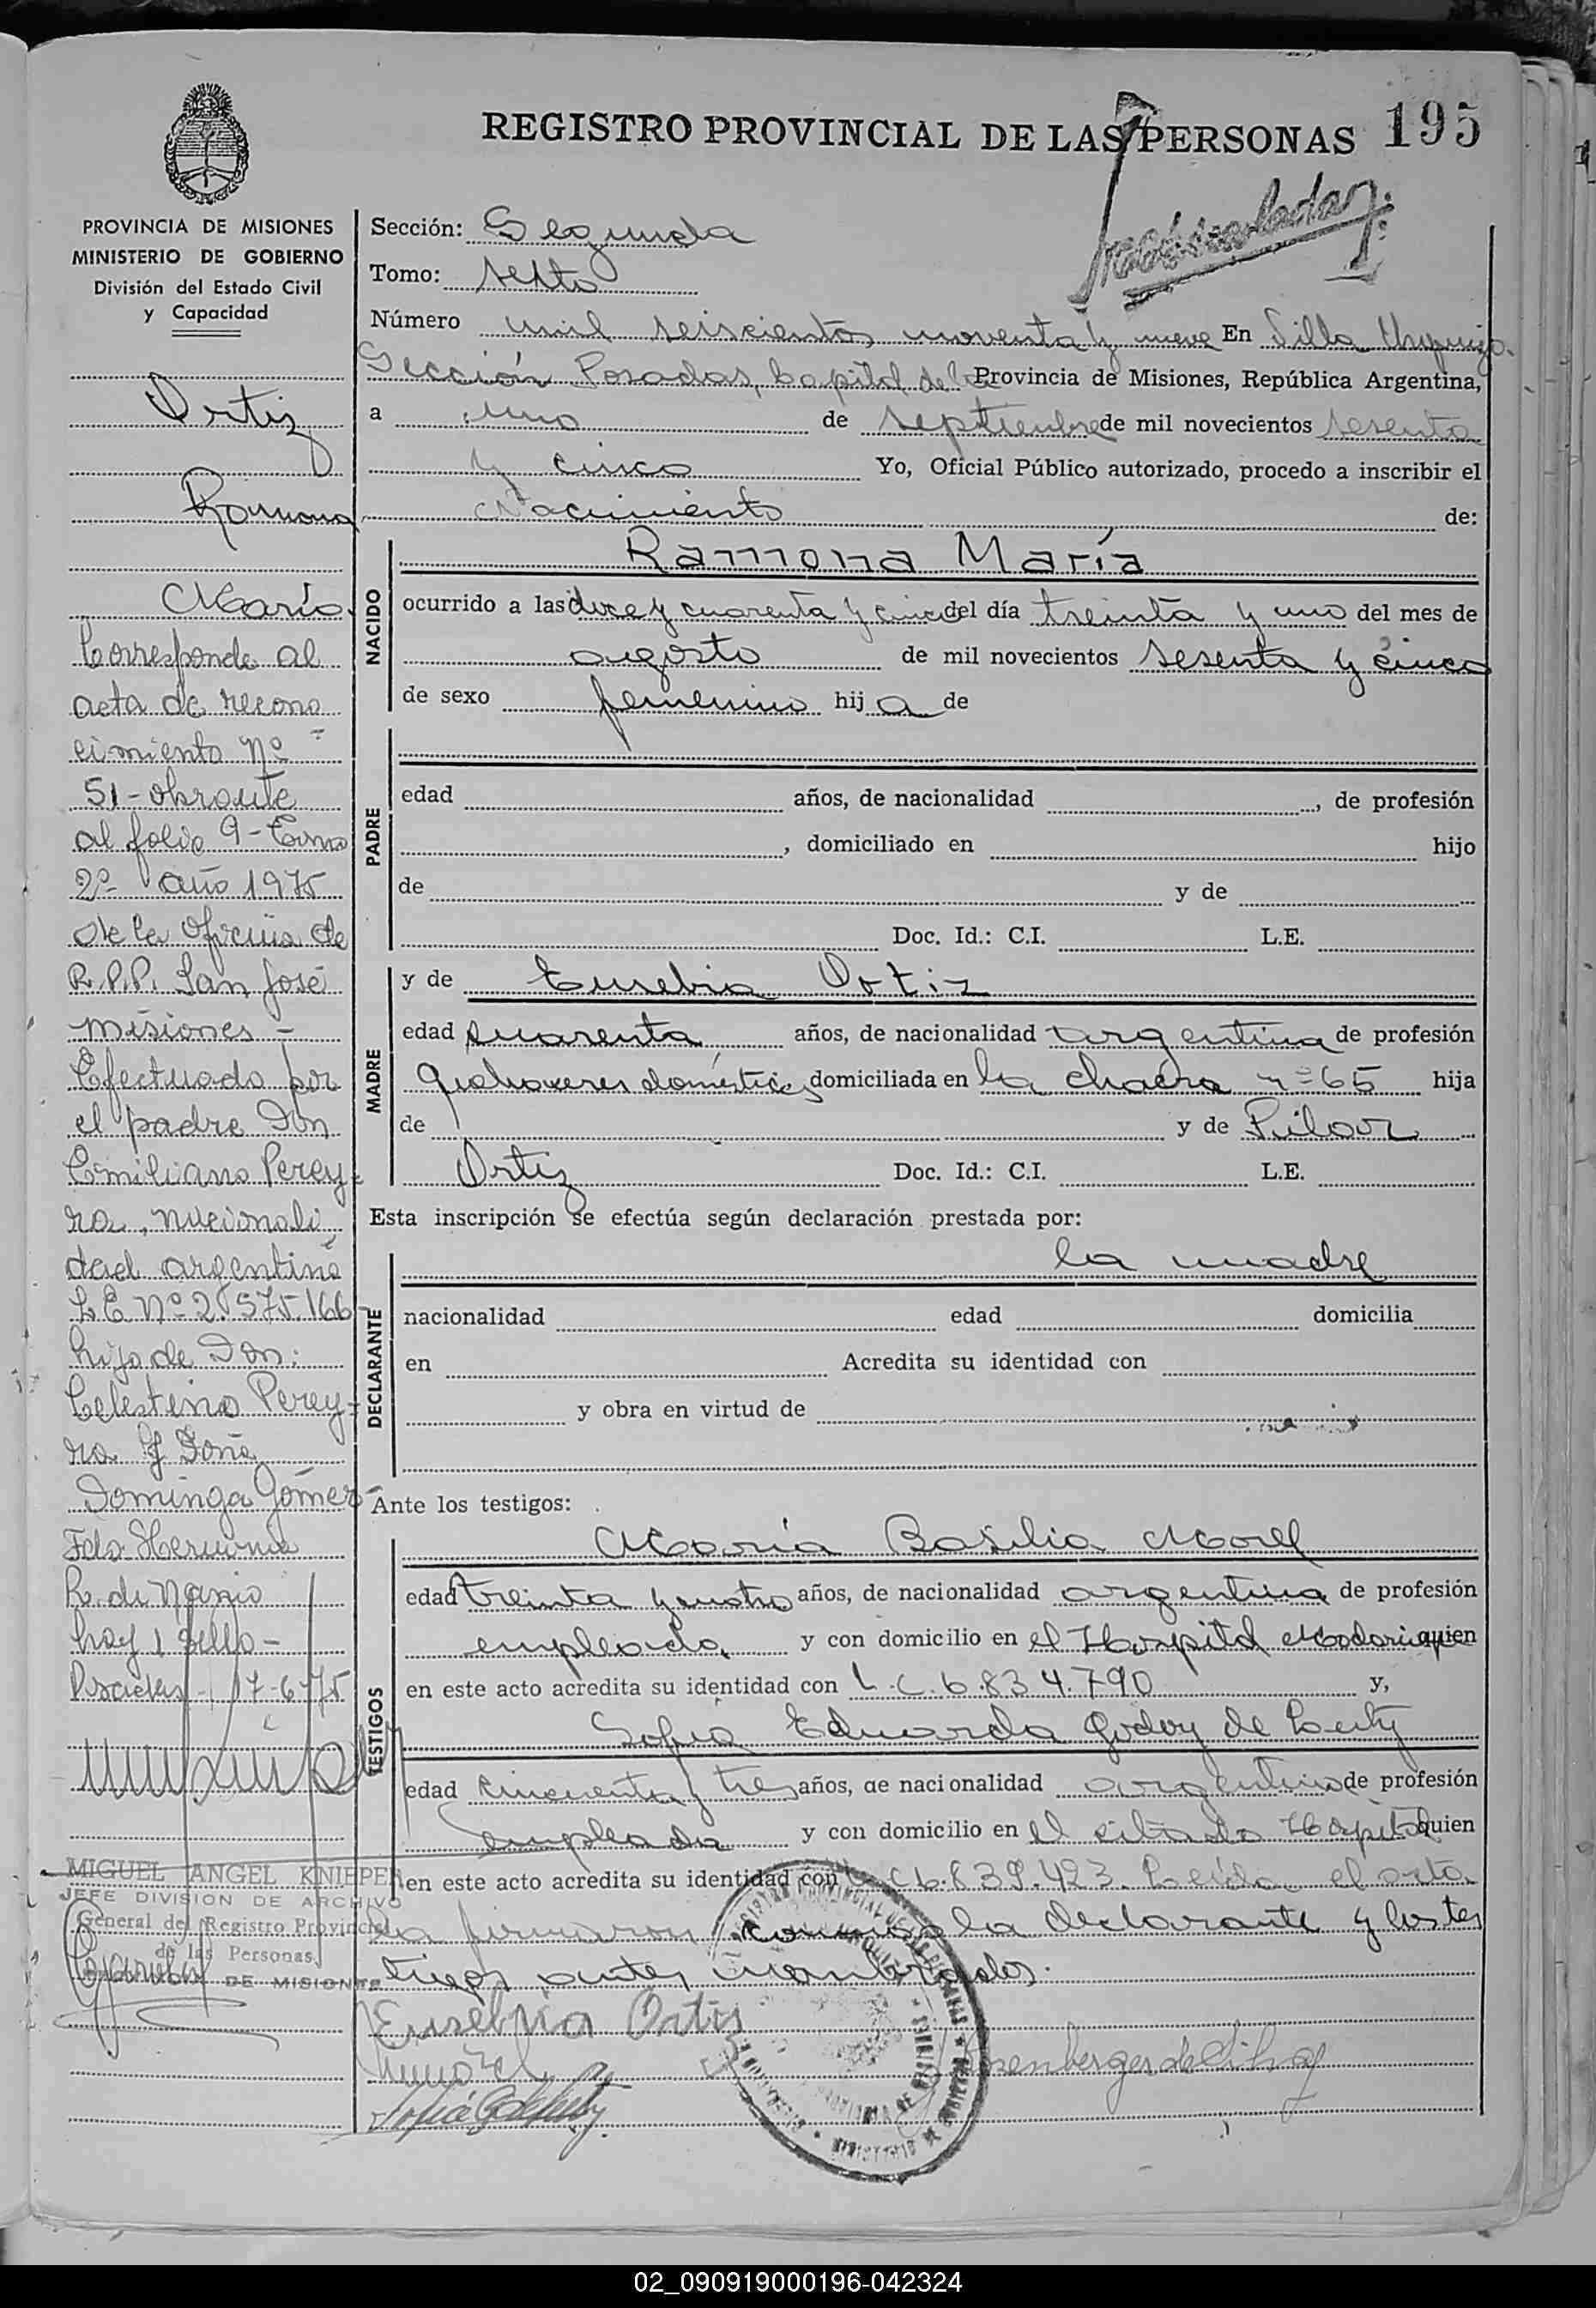 REGISTRO PROVINCIAL DE LAS PERSONAS 195
PROVINCIA DE MISIONES
MINISTERIO DE GOBIERNO
División del Estado Civil
y Capacidad
Ortiz
Ramona
María
Corresponde al
acta de recono
cimiento Nº
51 - obrante
al folio 9 - Tomo
2º año 1975
de la Oficina de
R.P.P. San José
Misiones -
Efectuado por
el padre Don
Emiliano Perey-
ra, nacionali
dad argentina
L.E Nº 2.575.166
hijo de Don:
Celestino Perey-
ra y Doña
Dominga Gómez-
Fdo. Herminia
R. de
hay 1 sello -
Posadas - 17-6-75
MIGUEL ANGEL KNIEPER
JEFE DIVISION DE ARCHIVO
General del Registro Provincial
de las Personas
DE MISIONES
Sección: Segunda
Tomo: sexto
Número mil seiscientos noventa y nueve En Villa Urquiza.
Sección Posadas, Capital de la Provincia de Misiones, República Argentina,
a uno de septiembre de mil novecientos sesenta
y cinco Yo, Oficial Público autorizado, procedo a inscribir el
Nacimiento de:
NACIDO
Ramona María
ocurrido a las doce y cuarenta y cinco del día treinta y uno del mes de
agosto de mil novecientos sesenta y cinco
de sexo femenino hij a de
PADRE
edad años, de nacionalidad , de profesión
, domiciliado en hijo
de y de
Doc. Id.: C.I. L.E.
MADRE
y de Eusebia Ortiz
edad cuarenta años, de nacionalidad argentina de profesión
quehaceres domésticos domiciliada en la chacra nº 65 hija
de y de Pilar
Ortiz Doc. Id.: C.I. L.E.
Esta inscripción se efectúa según declaración prestada por:
DECLARANTE
la madre
nacionalidad edad domicilia
en Acredita su identidad con
y obra en virtud de
Ante los testigos:
TESTIGOS
María Basilia Morel
edad treinta y cuatro años, de nacionalidad argentina de profesión
empleada y con domicilio en el Hospital Madariaga quien
en este acto acredita su identidad con L.C. 6.834.790 y,
Sofía Eduarda Godoy de
edad cincuenta y tres años, de nacionalidad argentina de profesión
empleada y con domicilio en el citado Hospital quien
en este acto acredita su identidad con L.C 6.839.423. Leída el acta
la firmaron conmigo la declarante y los tes
tigos antes nombrados.
Eusebia Ortiz